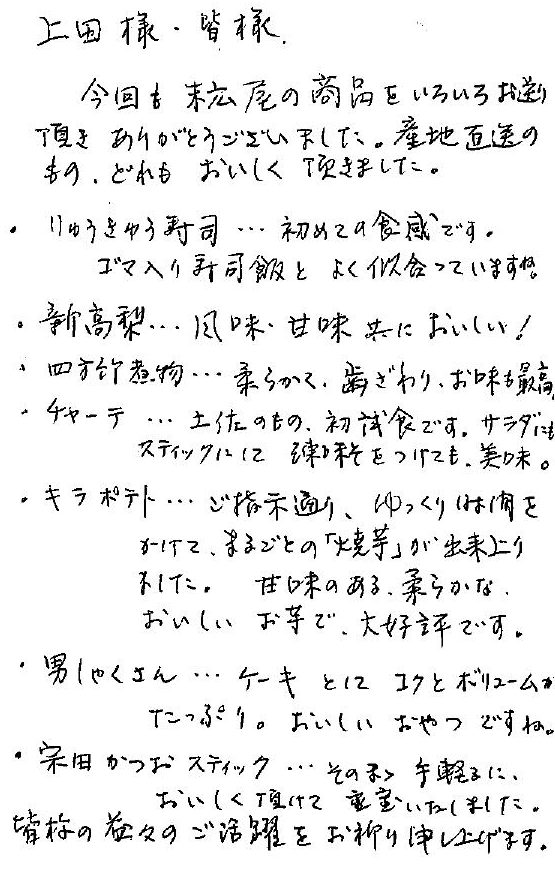 上田様・皆様
今回も末広屋の商品をいろいろお送り
頂きありがとうございました。産地直送の
もの、どれもおいしく頂きました。
・りゅうきゅう寿司…初めての食感です。
ゴマ入り寿司飯とよく似合っていますね。
・新高梨…風味・甘味共においしい!
・四方竹煮物…柔らかくて、歯ざわり、お味も最高
・チャーテ…土佐のもの、初試食です。サラダにも
スティックにして練味噌をつけても、美味。
・キラポテト…ご指示通り、ゆっくり時間を
かけて、まるごとの「焼芋」が出来上り
ました。甘味のある、柔らかな、
おいしいお芋で、大好評です。
・男しゃくさん…ケーキとしてコクとボリュームが
たっぷり。おいしいおやつですね。
・宗田かつおスティック…そのまゝ手軽に、
おいしく頂けて重宝いたしました。
皆様の益々のご活躍をお祈り申し上げます。